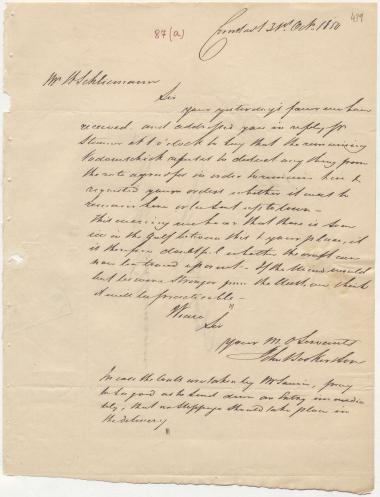 419
87 (a)
Cronstadt 31st Oct. 1850
Mr H Schliemann
Sir
Your yesterday's favour we have
received and addressed you in reply pr
Steamer at 1 o'clock to say that the remaining
refused to deduct any thing from
the rate agreed for in order to
requested your orders whether it must be
remain here or be sent up to town -
This morning we hear that there is some
ice in the Gulf between this & your place, it
is therefore doubtful whether the craft can
now be towed up or not - If the wind would
but become stronger from the West, we think
it will be practicable -
We are
Sir
Your M O Servants
John Booker & Son
In case the boats are taken by Mr , pray
be so good as to send down an Entry immedia
tely, that no stoppage should take place in
the delivery